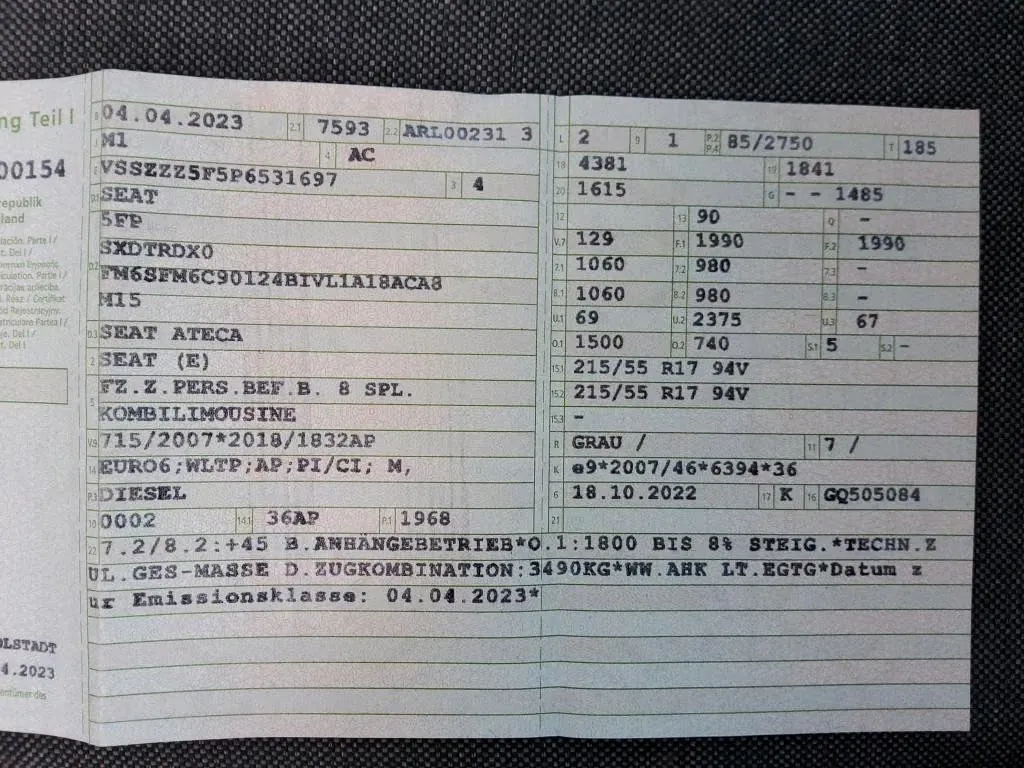 ng Teil I
00154
republik
land
B 04.04.2023 2.1 7593 2.2 ARL00231 3
J M1 4 AC
E VSSZZZ5F5P6531697 3 4
D.1 SEAT
5FP
SXDTRDX0
D.2 FM6SFM6C90124BIVL1A18ACA8
M15
D.3 SEAT ATECA
2 SEAT (E)
5 FZ.Z.PERS.BEF.B. 8 SPL.
KOMBILIMOUSINE
V.9 715/2007*2018/1832AP
14 EURO6;WLTP;AP;PI/CI; M,
P.3 DIESEL
10 0002 14.1 36AP P.1 1968
L 2 9 1 P.2 P.4 85/2750 T 185
18 4381 19 1841
20 1615 G - - 1485
12 13 90 Q -
V.7 129 F.1 1990 F.2 1990
7.1 1060 7.2 980 7.3 -
8.1 1060 8.2 980 8.3 -
U.1 69 U.2 2375 U.3 67
O.1 1500 O.2 740 S.1 5 S.2 -
15.1 215/55 R17 94V
15.2 215/55 R17 94V
15.3 -
R GRAU / 11 7 /
K e9*2007/46*6394*36
6 18.10.2022 17 K 16 GQ505084
21
22 7.2/8.2:+45 B.ANHÄNGEBETRIEB*O.1:1800 BIS 8% STEIG.*TECHN.Z
UL.GES-MASSE D.ZUGKOMBINATION:3490KG*WW.AHK LT.EGTG*Datum z
ur Emissionsklasse: 04.04.2023*
OLSTADT
4.2023
entümer des